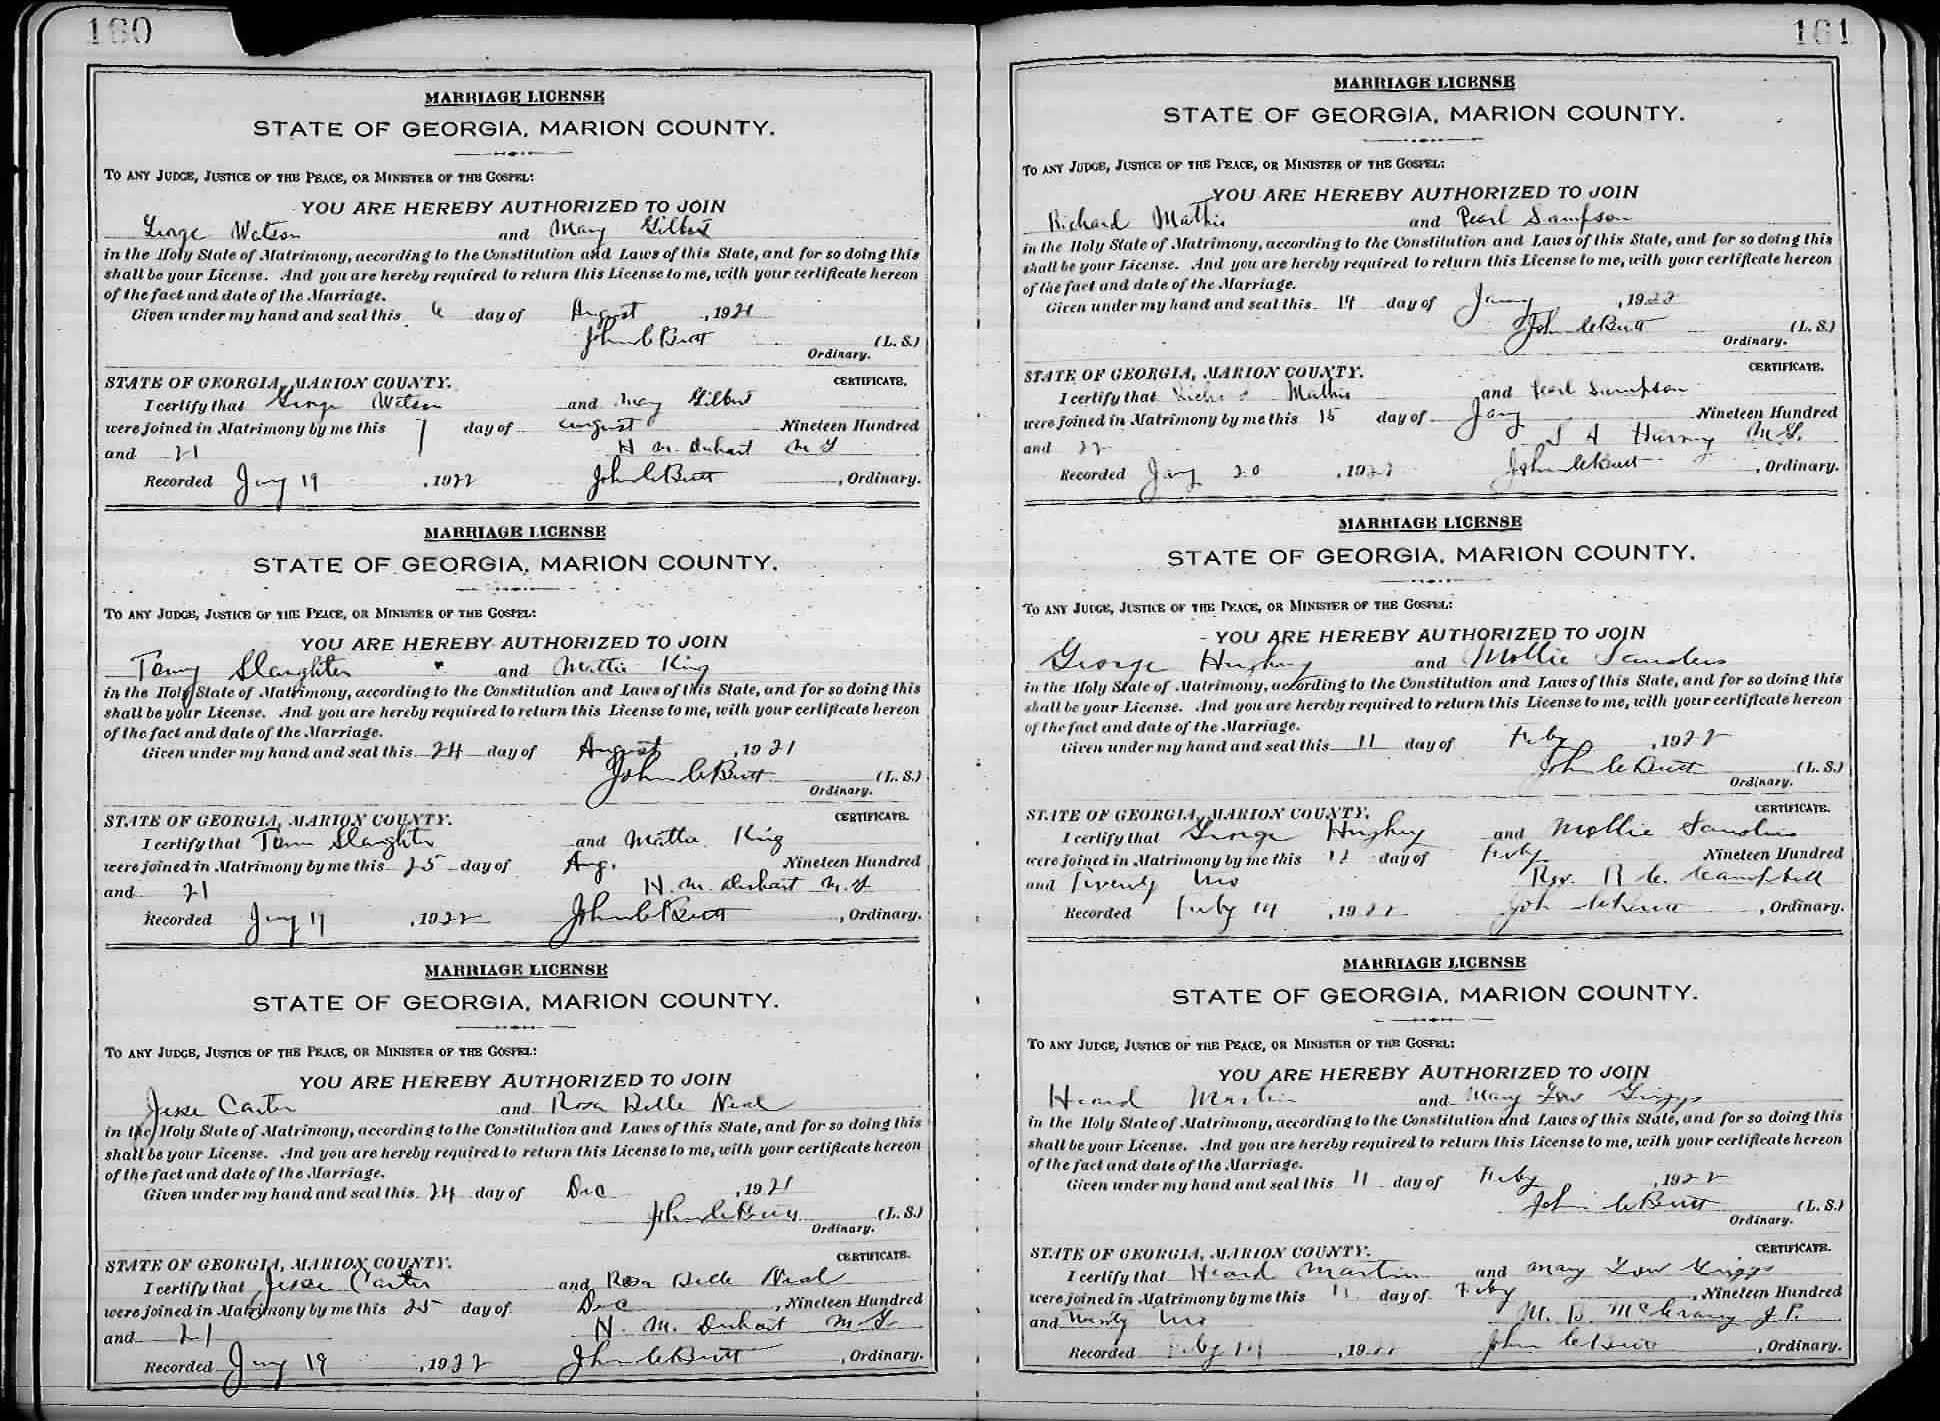 160
MARRIAGE LICENSE
STATE OF GEORGIA, MARION COUNTY.
TO ANY JUDGE, JUSTICE OF THE PEACE, OR MINISTER OF THE GOSPEL:
YOU ARE HEREBY AUTHORIZED TO JOIN
George Watson and Mary Gilbert
in the Holy State of Matrimony, according to the Constitution and Laws of this State, and for so doing this
shall be your License. And you are hereby required to return this License to me, with your certificate hereon
of the fact and date of the Marriage.
Given under my hand and seal this 6 day of August, 1921
John C Butt (L. S.)
Ordinary.
STATE OF GEORGIA, MARION COUNTY. CERTIFICATE.
I certify that George Watson and May Gilbert
were joined in Matrimony by me this 7 day of August Nineteen Hundred
and 21 H M M G
Recorded Jany 19, 1922 John C Butt, Ordinary.
MARRIAGE LICENSE
STATE OF GEORGIA, MARION COUNTY.
TO ANY JUDGE, JUSTICE OF THE PEACE, OR MINISTER OF THE GOSPEL:
YOU ARE HEREBY AUTHORIZED TO JOIN
Tomy Slaughter and Mattie King
in the Holy State of Matrimony, according to the Constitution and Laws of this State, and for so doing this
shall be your License. And you are hereby required to return this License to me, with your certificate hereon
of the fact and date of the Marriage.
Given under my hand and seal this 24 day of August, 1921
John C Butt (L. S.)
Ordinary.
STATE OF GEORGIA, MARION COUNTY. CERTIFICATE.
I certify that Tom Slaughter and Mattie King
were joined in Matrimony by me this 25 day of Aug. Nineteen Hundred
and 21 H. M. M. G
Recorded Jany, 1922 John C Butt, Ordinary.
MARRIAGE LICENSE
STATE OF GEORGIA, MARION COUNTY.
TO ANY JUDGE, JUSTICE OF THE PEACE, OR MINISTER OF THE GOSPEL:
YOU ARE HEREBY AUTHORIZED TO JOIN
Jesse Carter and Rosa Belle Neal
in the Holy State of Matrimony, according to the Constitution and Laws of this State, and for so doing this
shall be your License. And you are hereby required to return this License to me, with your certificate hereon
of the fact and date of the Marriage.
Given under my hand and seal this 24 day of Dec, 1921
John C Butt (L. S.)
Ordinary.
STATE OF GEORGIA, MARION COUNTY. CERTIFICATE.
I certify that Jesse Carter and Rosa Belle Neal
were joined in Matrimony by me this 25 day of Dec, Nineteen Hundred
and 21 H. M. M G
Recorded Jany 19, 1922 John C Butt, Ordinary.
161
MARRIAGE LICENSE
STATE OF GEORGIA, MARION COUNTY.
TO ANY JUDGE, JUSTICE OF THE PEACE, OR MINISTER OF THE GOSPEL:
YOU ARE HEREBY AUTHORIZED TO JOIN
Richard Mathis and Pearl Sampson
in the Holy State of Matrimony, according to the Constitution and Laws of this State, and for so doing this
shall be your License. And you are hereby required to return this License to me, with your certificate hereon
of the fact and date of the Marriage.
Given under my hand and seal this 14 day of Jany, 1922
John C Butt (L. S.)
Ordinary.
STATE OF GEORGIA, MARION COUNTY. CERTIFICATE.
I certify that Mathis and Pearl Sampson
were joined in Matrimony by me this 15 day of Jany Nineteen Hundred
and 22 M. G.
Recorded Jany 20, 1922 John C Butt, Ordinary.
MARRIAGE LICENSE
STATE OF GEORGIA, MARION COUNTY.
TO ANY JUDGE, JUSTICE OF THE PEACE, OR MINISTER OF THE GOSPEL:
YOU ARE HEREBY AUTHORIZED TO JOIN
George Hughey and Mollie Sanders
in the Holy State of Matrimony, according to the Constitution and Laws of this State, and for so doing this
shall be your License. And you are hereby required to return this License to me, with your certificate hereon
of the fact and date of the Marriage.
Given under my hand and seal this 11 day of Feby, 1922
John C Butt (L. S.)
Ordinary.
STATE OF GEORGIA, MARION COUNTY. CERTIFICATE.
I certify that George Hughey and Mollie Sanders
were joined in Matrimony by me this 12 day of Feby Nineteen Hundred
and Twenty two Rev. R. C. Campbell
Recorded Feby 14, 1922 John C Butt, Ordinary.
MARRIAGE LICENSE
STATE OF GEORGIA, MARION COUNTY.
TO ANY JUDGE, JUSTICE OF THE PEACE, OR MINISTER OF THE GOSPEL:
YOU ARE HEREBY AUTHORIZED TO JOIN
Heard Martin and Mary Low Griggs
in the Holy State of Matrimony, according to the Constitution and Laws of this State, and for so doing this
shall be your License. And you are hereby required to return this License to me, with your certificate hereon
of the fact and date of the Marriage.
Given under my hand and seal this 11 day of Feby, 1922
John C Butt (L. S.)
Ordinary.
STATE OF GEORGIA, MARION COUNTY. CERTIFICATE.
I certify that Heard Martin and Mary Low Griggs
were joined in Matrimony by me this 11 day of Feby, Nineteen Hundred
and Twenty two M. B. McCrary J. P.
Recorded Feby 14, 1922 John C Butt, Ordinary.